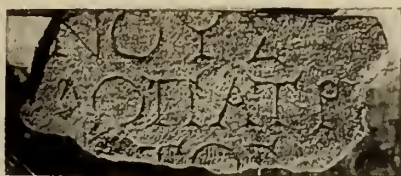 ΝΟΥΣ
ΛΟΠΑΤΡ